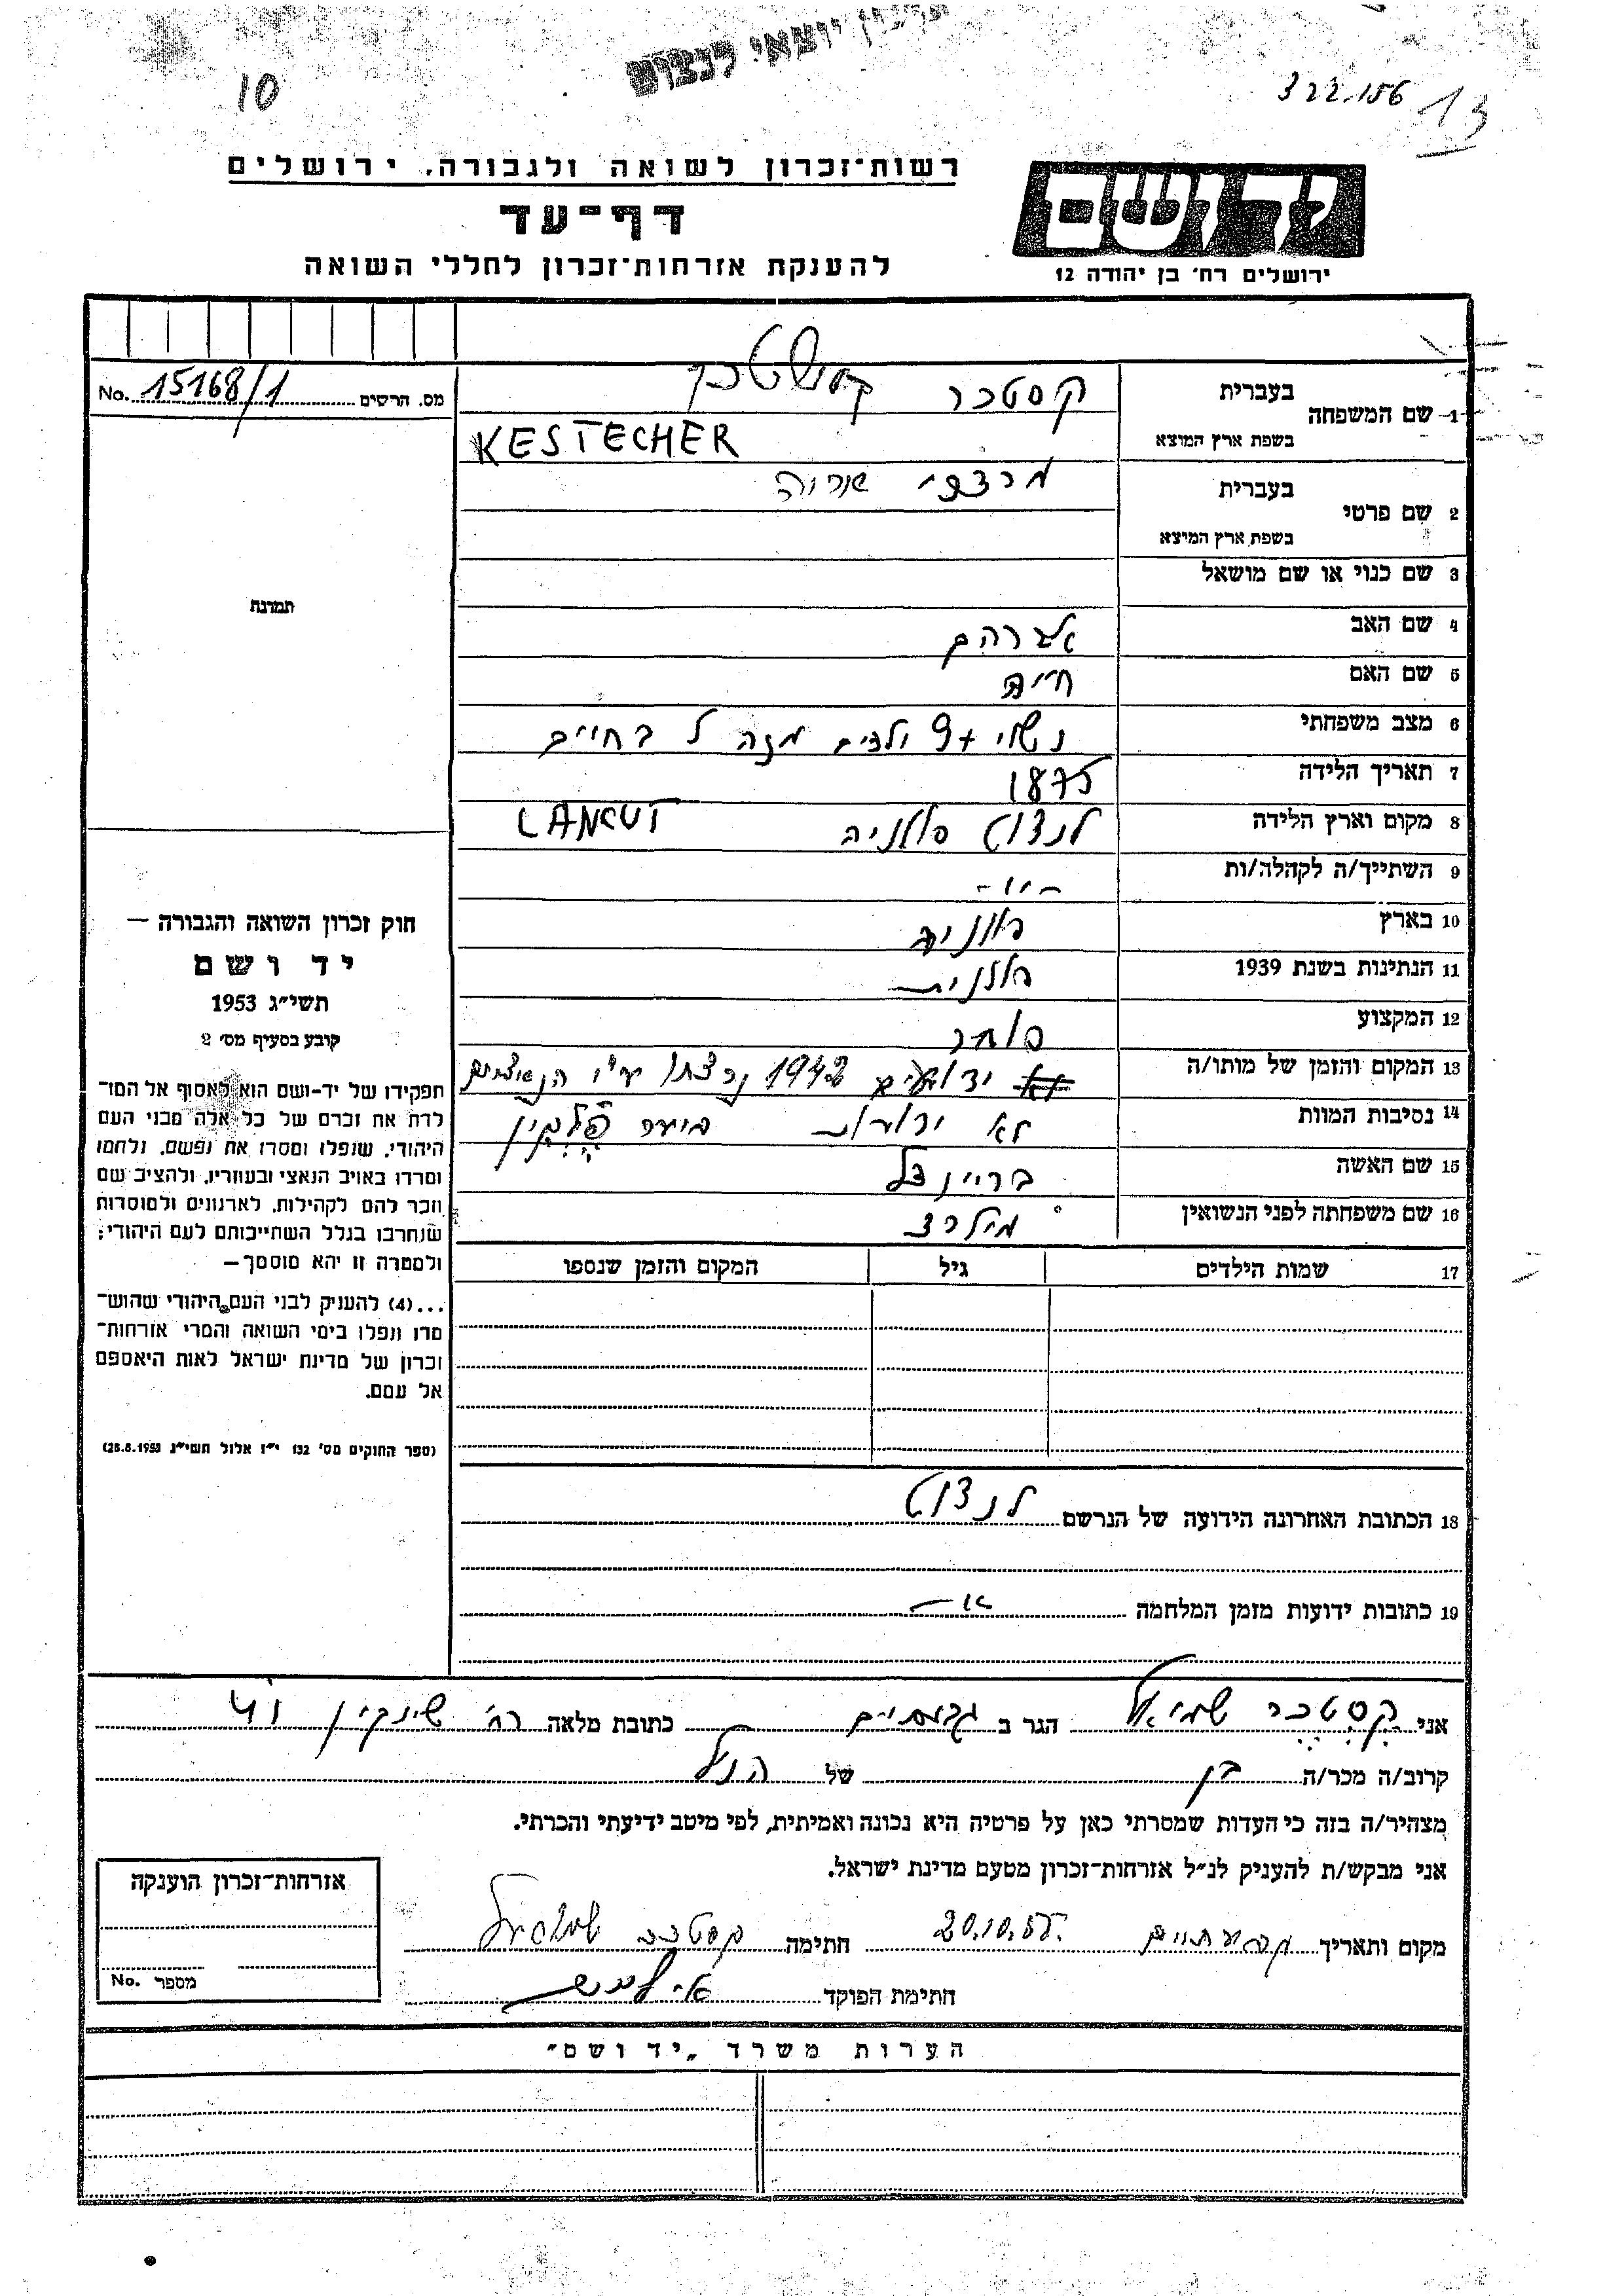 יוצאי לנצוט
10
322.156
13
רשות־זכרון לשואה ולגבורה, ירושלים
דף־עד
להענקת אזרחות־זכרון לחללי השואה
יד ושם
ירושלים רח׳ בן יהודה 12
מס. הרשים No. 15168/1
1 שם המשפחה
בעברית קסטכר
בשפת ארץ המוצא KESTECHER
2 שם פרטי
בעברית מרדכי
בשפת ארץ המוצא
3 שם כנוי או שם מושאל
4 שם האב אברהם
5 שם האם חיה
6 מצב משפחתי נשוי +9 ילדים מזה ל בחיים
7 תאריך הלידה 1875
8 מקום וארץ הלידה לנצוט פולניה LANCUT
9 השתייך/ה לקהלה/ות -"-
10 בארץ פולניה
11 הנתינות בשנת 1939 פולנית
12 המקצוע סוחר
13 המקום והזמן של מותו/ה ידועים 1942 נרצחו ע״י הנאצים
14 נסיבות המוות לא ידועות ביער
15 שם האשה בריינדל
16 שם משפחתה לפני הנשואין
17 שמות הילדים גיל המקום והזמן שנספו
18 הכתובת האחרונה הידועה של הנרשם לנצוט
19 כתובות ידועות מזמן המלחמה -"-
תמונה
חוק זכרון השואה והגבורה —
יד ושם
תשי״ג 1953
קובע בסעיף מס׳ 2
תפקידו של יד-ושם הוא לאסוף אל המו־
לדת את זכרם של כל אלה מבני העם
היהודי, שנפלו ומסרו את נפשם, נלחמו
ומרדו באויב הנאצי ובעוזריו, ולהציב שם
וזכר להם לקהילות, לארגונים ולמוסדות
שנחרבו בגלל השתייכותם לעם היהודי;
ולמטרה זו יהא מוסמך—
...(4) להעניק לבני העם היהודי שהוש־
מדו ונפלו בימי השואה והמרי אזרחות־
זכרון של מדינת ישראל לאות היאספם
אל עמם.
(ספר החוקים מס׳ 132 י״ז אלול תשי״ג 28.8.1953)
אני קסטכר שמואל הגר ב גבעתיים כתובת מלאה רח׳ שינקין
קרוב/ה מכר/ה בן של הנ״ל
מצהיר/ה בזה כי העדות שמסרתי כאן על פרטיה היא נכונה ואמיתית, לפי מיטב ידיעתי והכרתי.
אני מבקש/ת להעניק לנ״ל אזרחות־זכרון מטעם מדינת ישראל.
מקום ותאריך 20.10.55 חתימה קסטכר שמואל
חתימת הפוקד
אזרחות־זכרון הוענקה
מספר No.
הערות משרד „יד ושם״